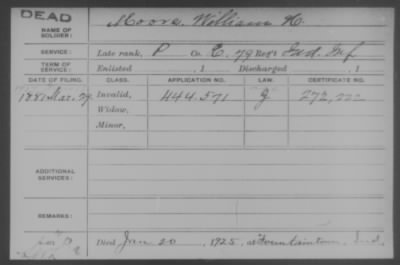 DEAD
NAME OF SOLDIER: Moore, William H.
SERVICE: Late rank, P Co. E, 79 Reg't Ind. Inf
TERM OF SERVICE: Enlisted , 1 Discharged , 1
DATE OF FILING. CLASS. APPLICATION NO. LAW. CERTIFICATE NO.
1882 Mar. 29 Invalid, 444.571 G 272,222
Widow,
Minor,
ADDITIONAL SERVICES:
REMARKS:
Died Jan 20 , 1925, at Fountaintown, Ind.